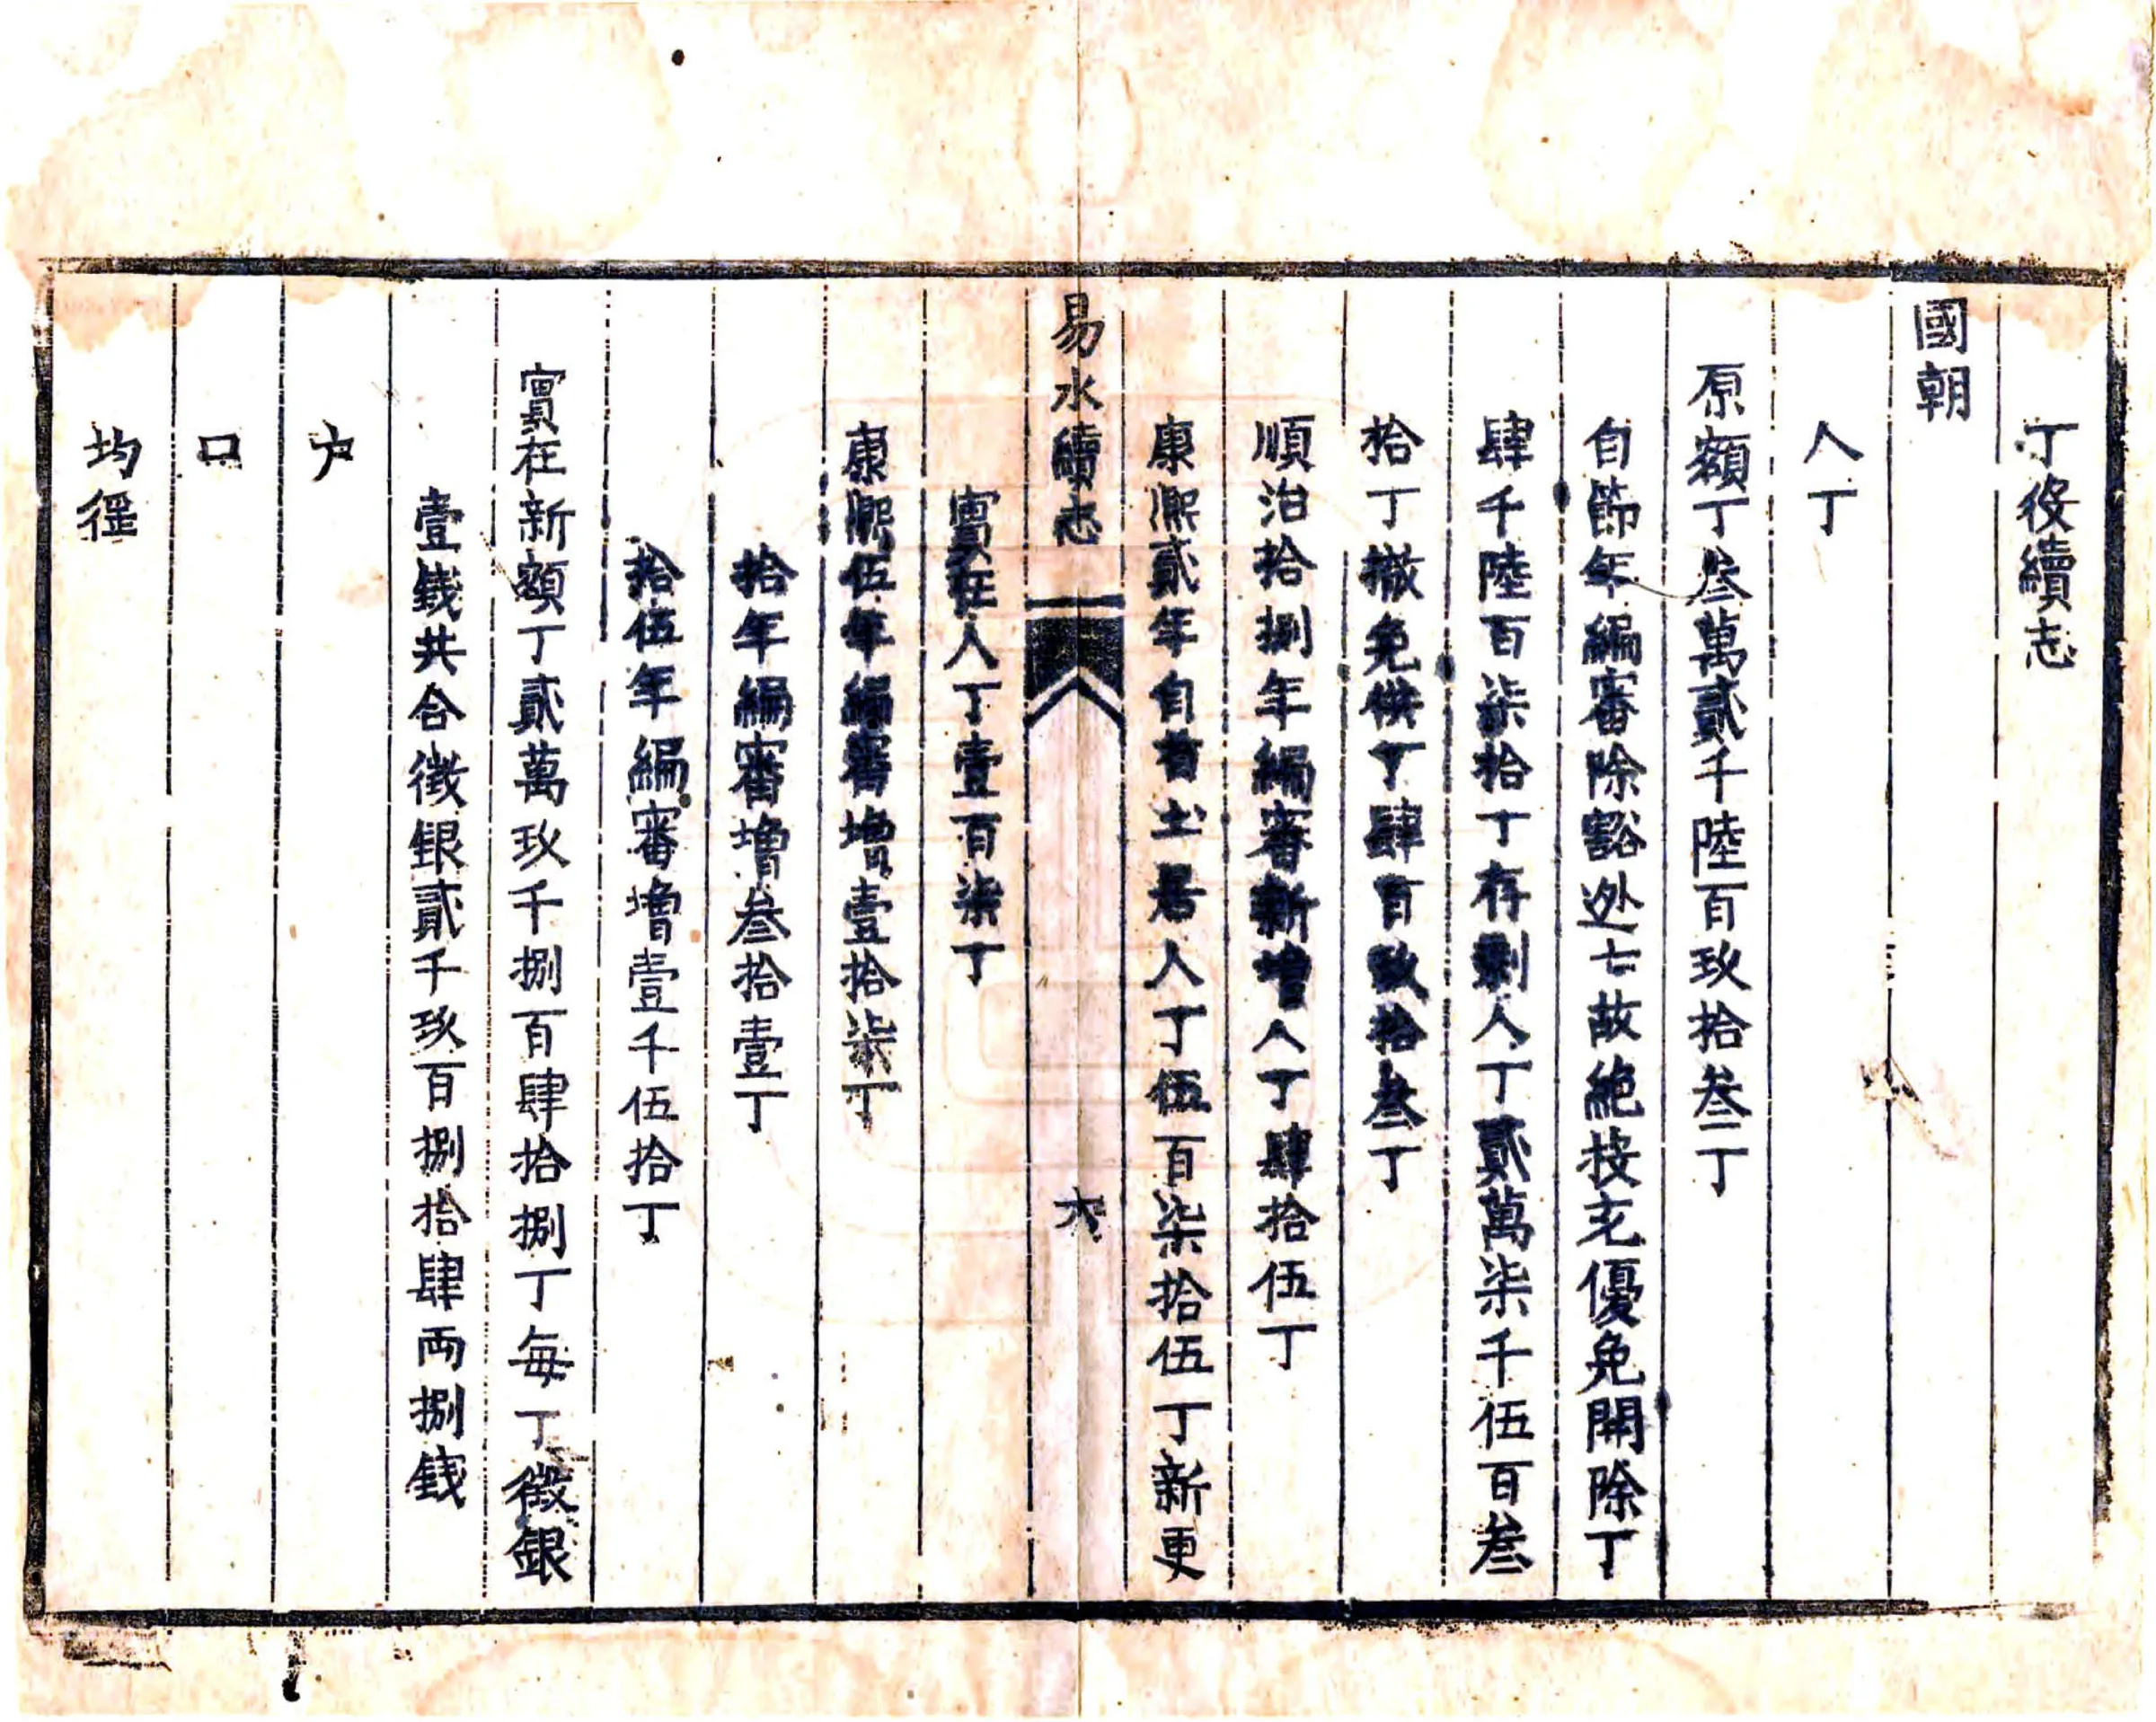 丁役續志
國朝
人丁
原額丁叁萬貳千陸百玖拾叁丁
自節年編審除豁迯亡故絶按充優免開除丁
肆千陸百柒拾丁存剩人丁貳萬柒千伍百叁
拾丁撤免供丁肆百玖拾叁丁
順治拾捌年編審新增人丁肆拾伍丁
康熙貳年自首土居人丁伍百柒拾伍丁新更
實在人丁壹百柒丁
易水續志 六
康熙伍年編審增壹拾柒丁
拾年編審增叁拾壹丁
拾伍年編審增壹千伍拾丁
實在新額丁貳萬玖千捌百肆拾捌丁每丁徵銀
壹錢共合徵銀貳千玖百捌拾肆兩捌錢
户
口
均徭